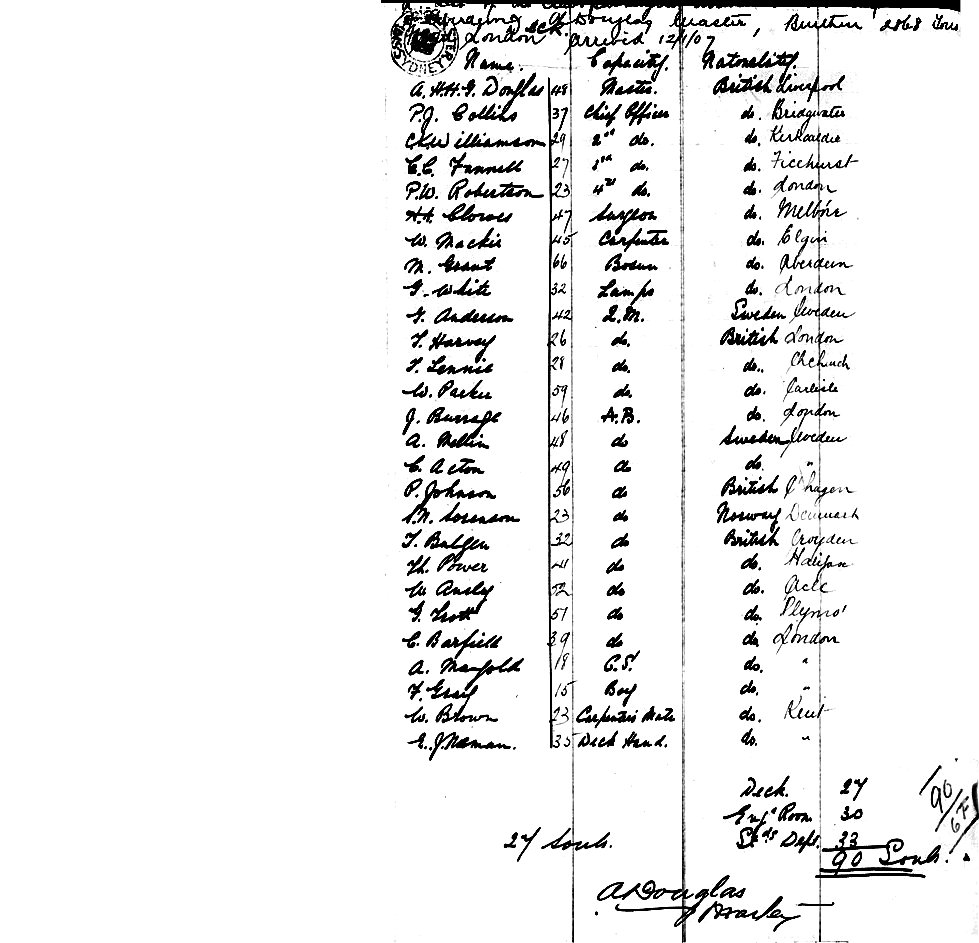 of Douglas, Master, Burthen 2868 Tons
London arrived 12/1/07
Name. Capacity. Nationality.
A.H.H.G. Douglas 48 Master. British Liverpool
P.J. Collins 37 Chief Officer do. Bridgwater
Williamson 29 2nd do. do. Kirkcaldie
C.C. Fannell 27 3rd do. do. Ticehurst
P.W. Robertson 23 4th do. do. London
H.H. Clowes 47 Surgeon do. Melbne
W. Mackie 45 Carpenter do. Elgin
M. Grant 66 Bosun do. Aberdeen
G. White 32 Lamps do. London
G. Anderson 42 Q.M. Sweden Sweden
T. Harvey 26 do. British London
T. Lennie 28 do. do. Chchurch
W. Parker 59 do. do. Carlisle
J. Burrage 46 A.B. do. London
A. Mellin 48 do Sweden Sweden
C. Acton 49 do do. "
P. Johnson 56 do British C'hagen
S.N. Sorenson 23 do Norway Denmark
T. 32 do British Croyden
Th. Power 41 do do. Halifax
W. Ansley 52 do do. Acle
G. Trott 51 do do. Plymo'
C. Barfield 39 do do London
A. Marfold 18 O.S. do. "
F. Gray 15 Boy do. "
W. Brown 23 Carpenters Mate do. Kent
E.J. Naman. 35 Deck Hand. do. "
Deck. 27
Eng. Room 30
90/67
Stds Dept. 33
27 Souls. 90 Souls.
A Douglas
Master
SYDNEY